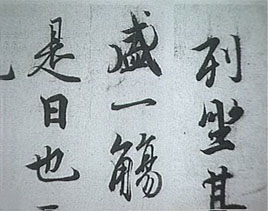 列坐其
盛一觴
是日也